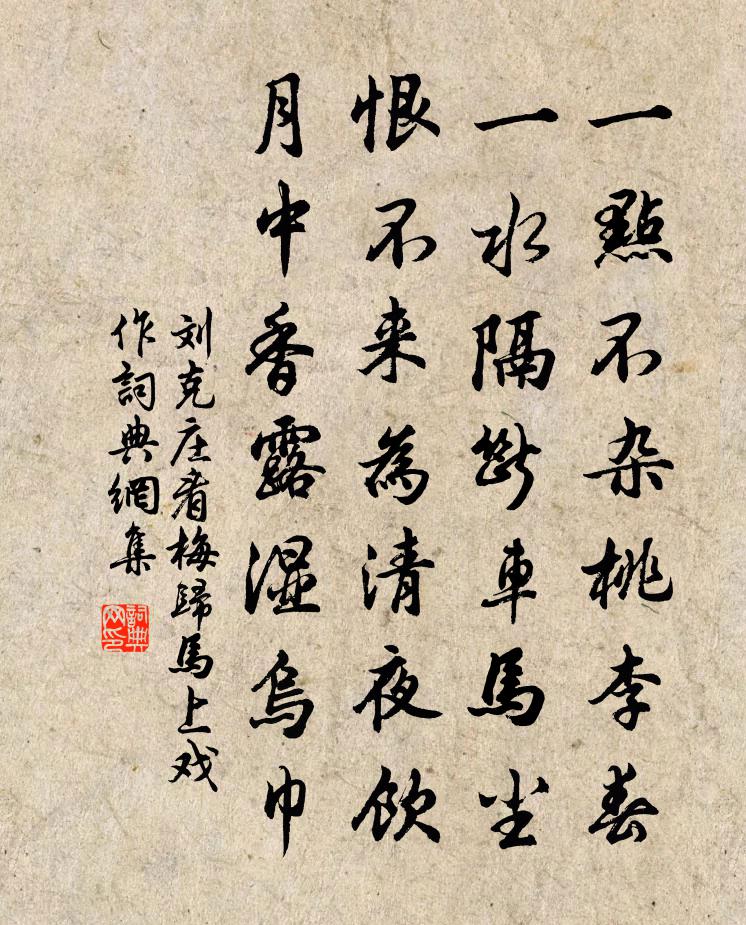 一點不杂桃李春
一水隔斷車馬尘
恨不来為清夜飲
月中香露湿烏巾
刘克庄看梅歸馬上戏
作詞典網集
詞典
网印